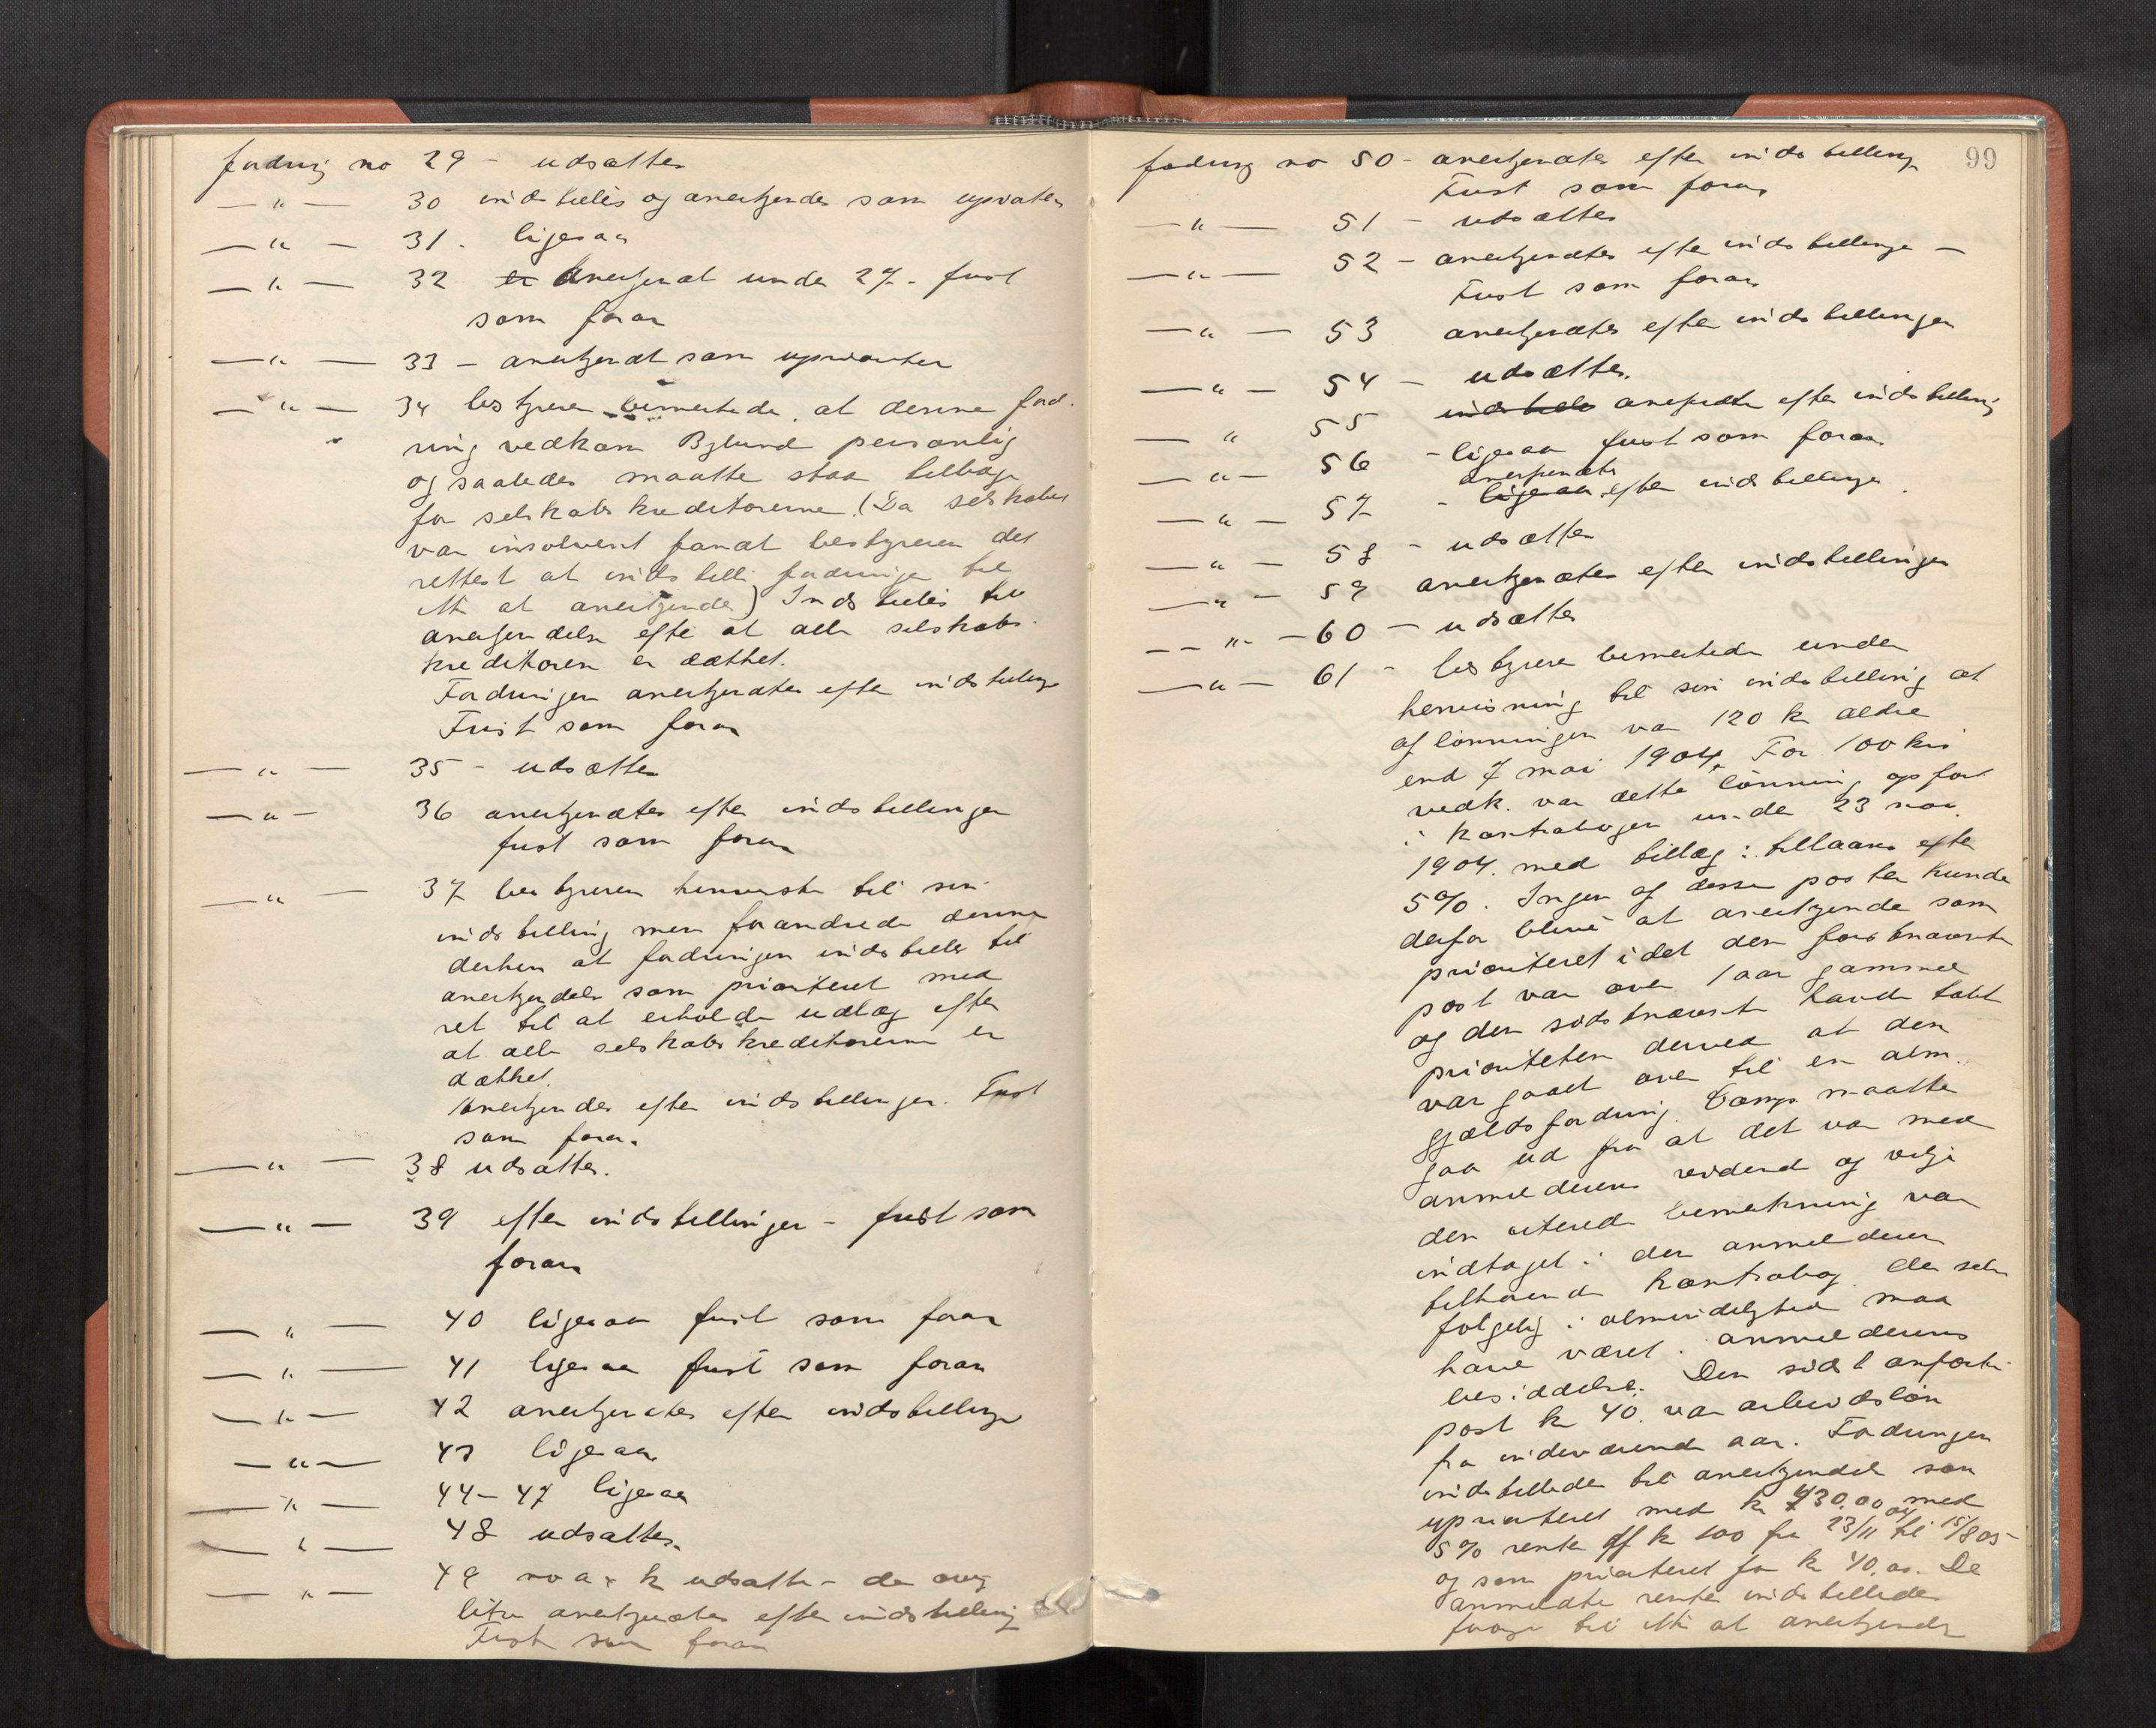 fordring no 29 - udsættes
— " — 30 indstilles og anerkjendes som uprioriter
— " — 31. ligesaa
— " — 32 er anerkjendt under 27. frist
som foran
— " — 33 - anerkjendt som uprioriter
— " — 34 bestyreren bemerkede, at denne ford-
ring vedkom Bylund personlig
og saaledes maatte staa tilbage
for selskabskreditorerne. (Da selskabet
var insolvent fandt bestyreren det
rettest at indstille fordringen til
ikke at anerkjendes) Indstilles til
anerkjendelse efter at alle selskabs-
kreditorer er dækket.
Fordringen anerkjendtes efter indstillingen
Frist som foran
— " — 35 - udsættes
— " — 36 anerkjendtes efter indstillingen
frist som foran
— " — 37 bestyreren henviste til sin
indstilling men forandrede denne
derhen at fordringen indstilles til
anerkjendelse som prioriteret med
ret til at erholde udlæg efter
at alle selskabskreditorerne er
dækket.
Anerkjendes efter indstillingen. Frist
som foran
— " — 38 udsættes.
— " — 39 efter indstillingen - frist som
foran
— " — 40 ligesaa frist som foran
— " — 41 ligesaa frist som foran
— " — 42 anerkjendtes efter indstillingen
— " — 43 ligesaa
— " — 44-47 ligesaa
— " — 48 udsættes.
— " — 49 no a + k udsættes - de øvrige
litra anerkjendtes efter indstilling
Frist som foran
99
fordring no 50 - anerkjendtes efter indstillingen
Frist som foran
— " — 51 - udsættes
— " — 52 - anerkjendtes efter indstillingen -
Frist som foran
— " — 53 anerkjendtes efter indstillingen
— " — 54 - udsættes.
— " 55 indstilles anerkjendtes efter indstilling
— " — 56 - ligesaa frist som foran
anerkjendtes
— " — 57 - ligesaa efter indstillingen
— " — 58 - udsættes
— " — 59 anerkjendtes efter indstillingen
— " — 60 - udsættes
— " — 61 - bestyreren bemerkede under
henvisning til sin indstilling at
af lønningen var 120 kr ældre
end 7 mai 1904. For 100 krs
vedk. var dette lønning opført
i kontrabogen under 23 nov.
1904. med tillæg: tillaans efter
5%. Ingen af disse poster kunde
derfor blive at anerkjende som
prioriteret idet den førstnævnte
post var over 1 aar gammel
og den sidstnævnte havde tabt
prioriteten derved at den
var gaaet over til en alm.
gjældsfordring. Man maatte
gaa ud fra at det var med
anmelderens vidende og vilje
den citerede bemerkning var
indtaget i den anmelderen
tilhørende kontrabog der selv-
følgelig i almindelighed maa
have været i anmelderens
besiddelse. Den sidst anførte
post kr 40. var arbeidsløn
fra indeværende aar. Fordringen
indstilledes til anerkjendelse som
uprioriteret med kr 730.00 med
5% rente af kr 100 fra 23/11 04 til 15/8 05 -
og som prioriteret for kr 40.00. De
anmeldte renter indstilledes
forøvr. til ikke at anerkjendes